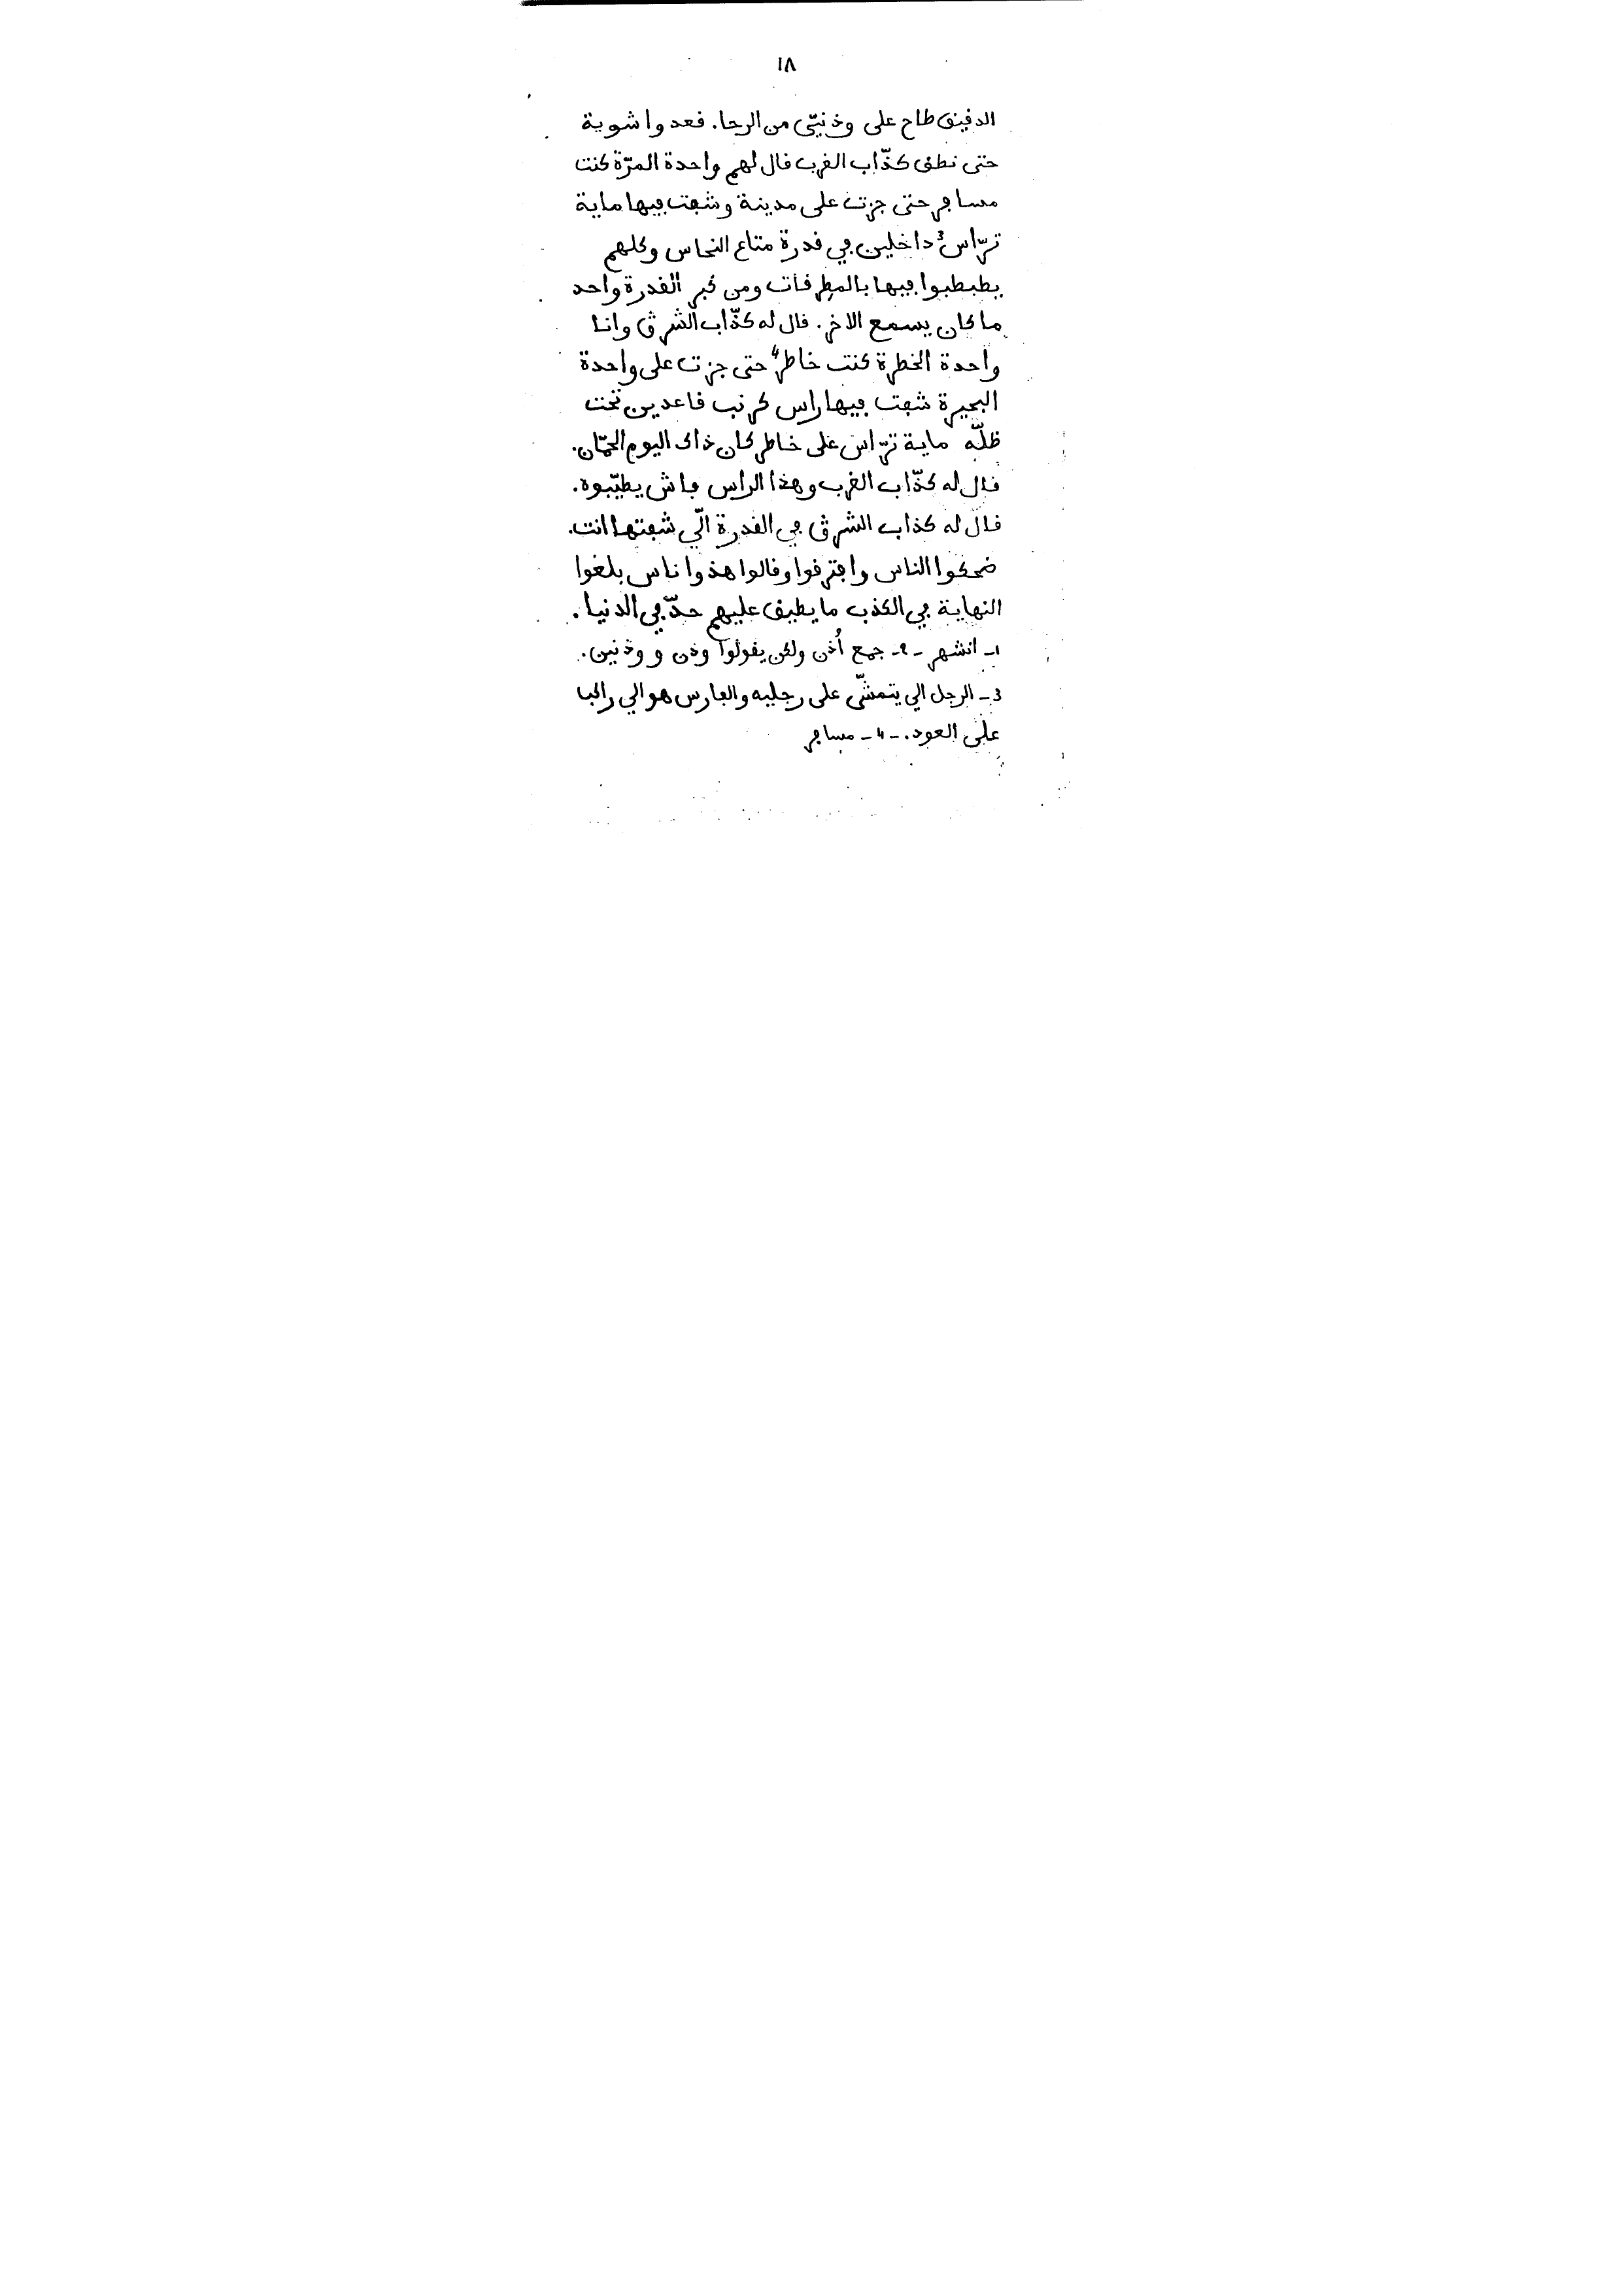 ١٨
الدقيق طاح على وذنيّ من الرحا. قعدوا شوية
حتى نطق كذّاب الغرب قال لهم واحدة المرّة كنت
مسافر حتى جزت على مدينة وشفت فيها ماية
ترّاس³ داخلين في قدرة متاع النحاس وكلهم
يطبطبوا فيها بالمطرقات ومن كبر القدرة واحد
ما كان يسمع الاخر. قال له كذّاب الشرق وانا
واحدة الخطرة كنت خاطر⁴ حتى جزت على واحدة
البحيرة شفت فيها راس كرنب قاعدين تحت
ظلّه ماية ترّاس على خاطر كان ذاك اليوم الحمّان.
قال له كذّاب الغرب وهذا الراس فاش يطيّبوه.
قال له كذاب الشرق في القدرة الّي شفتها انت.
ضحكوا الناس وافترقوا وقالوا هذوا ناس بلغوا
النهاية في الكذب ما يطيق عليهم حدّ في الدنيا.
1ـ انشهر ـ 2ـ جمع أُذن ولكن يقولوا وذن و وذنين.
3ـ الرجل الي يتمشّى على رجليه والفارس هو الي راكب
على العود. ـ 4 ـ مسافر